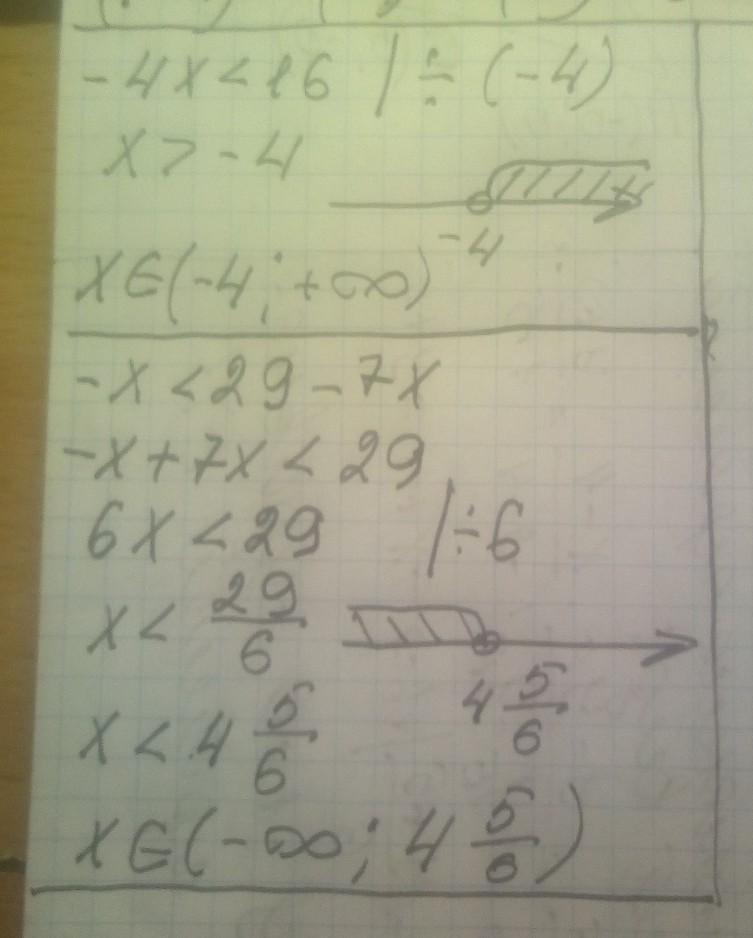 -4x < 16 | ÷ (-4)
x > -4
-4
x ∈ (-4; +∞)
-x < 29 - 7x
-x + 7x < 29
6x < 29 | ÷ 6
x < 29/6
x < 4 5/6
4 5/6
x ∈ (-∞; 4 5/6)